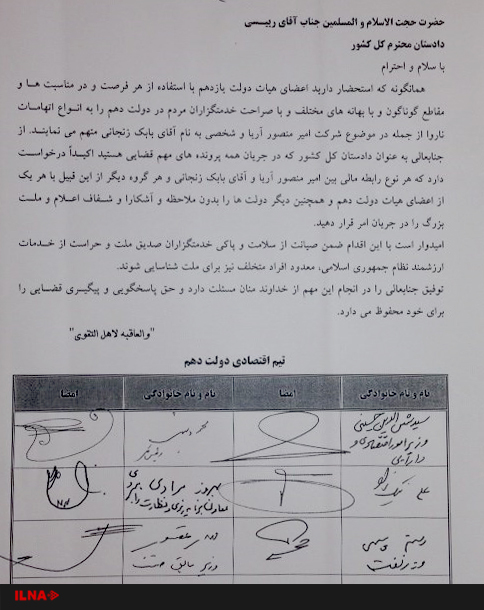 حضرت حجت الاسلام و المسلمین جناب آقای رییسی
دادستان محترم کل کشور
با سلام و احترام
همانگونه که استحضار دارید اعضای هیات دولت یازدهم با استفاده از هر فرصت و در مناسبت ها و
مقاطع گوناگون و با بهانه های مختلف و با صراحت خدمتگزاران مردم در دولت دهم را به انواع اتهامات
ناروا از جمله در موضوع شرکت امیر منصور آریا و شخصی به نام آقای بابک زنجانی متهم می نمایند. از
جنابعالی به عنوان دادستان کل کشور که در جریان همه پرونده های مهم قضایی هستید اکیداً درخواست
دارد که هر نوع رابطه مالی بین امیر منصور آریا و آقای بابک زنجانی و هر گروه دیگر از این قبیل با هر یک
از اعضای هیات دولت دهم و همچنین دیگر دولت ها را بدون ملاحظه و آشکارا و شفاف اعلام و ملت
بزرگ را در جریان امر قرار دهید.
امیدوار است با این اقدام ضمن صیانت از سلامت و پاکی خدمتگزاران صدیق ملت و حراست از خدمات
ارزشمند نظام جمهوری اسلامی، معدود افراد متخلف نیز برای ملت شناسایی شوند.
توفیق جنابعالی را در انجام این مهم از خداوند منان مسئلت دارد و حق پاسخگویی و پیگیری قضایی را
برای خود محفوظ می دارد.
"والعاقبه لاهل التقوی"
تیم اقتصادی دولت دهم
نام و نام خانوادگی امضا نام و نام خانوادگی امضا
سید شمس الدین حسینی
وزیر امور اقتصادی و
دارایی
علی نیکزاد
بهروز مرادی
رستم قاسمی
وزیر نفت
وزیر سابق صنعت
ILNA